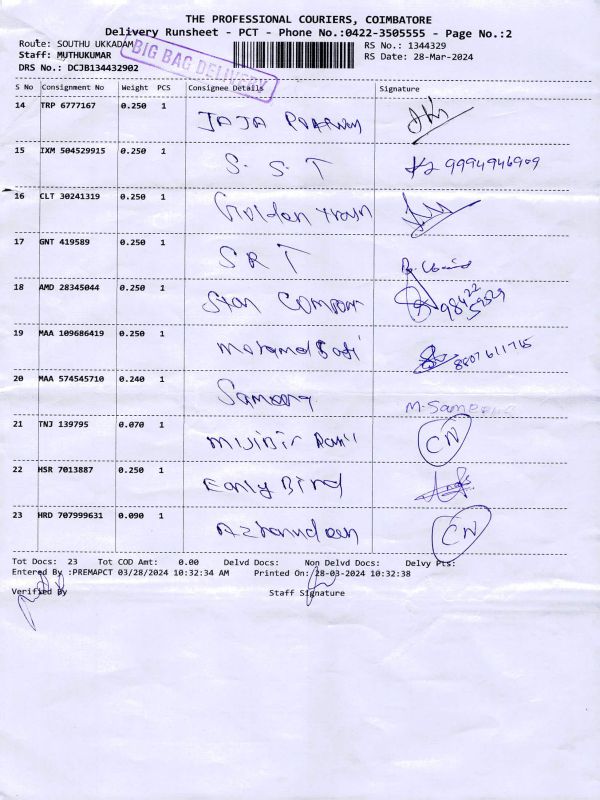 THE PROFESSIONAL COURIERS, COIMBATORE
Delivery Runsheet - PCT - Phone No.:0422-3505555 - Page No.:2
Route: SOUTHU UKKADAM RS No.: 1344329
Staff: MUTHUKUMAR RS Date: 28-Mar-2024
DRS No.: DCJB134432902
BIG BAG DELIVERY
S No Consignment No Weight PCS Consignee Details Signature
14 TRP 6777167 0.250 1 JAJA
15 IXM 504529915 0.250 1 S. S. T 9994946909
16 CLT 30241319 0.250 1 Golden Train
17 GNT 419589 0.250 1 SRT
18 AMD 28345044 0.250 1 Star
19 MAA 109686419 0.250 1
8807611715
20 MAA 574545710 0.240 1 M. Sameena
21 TNJ 139795 0.070 1 CN
22 HSR 7013887 0.250 1 Early Bird
23 HRD 707999631 0.090 1 CN
Tot Docs: 23 Tot COD Amt: 0.00 Delvd Docs: Non Delvd Docs: Delvy Pts:
Entered By :PREMAPCT 03/28/2024 10:32:34 AM Printed On: 28-03-2024 10:32:38
Verified By Staff Signature